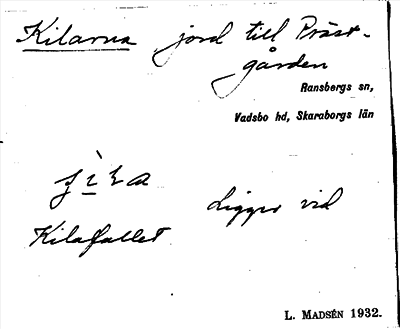 Kilarna jord till Präst-
gården
Ransbergs sn,
Vadsbo hd, Skaraborgs län
ligger vid
Kilafallet
L. MADSÉN 1932.